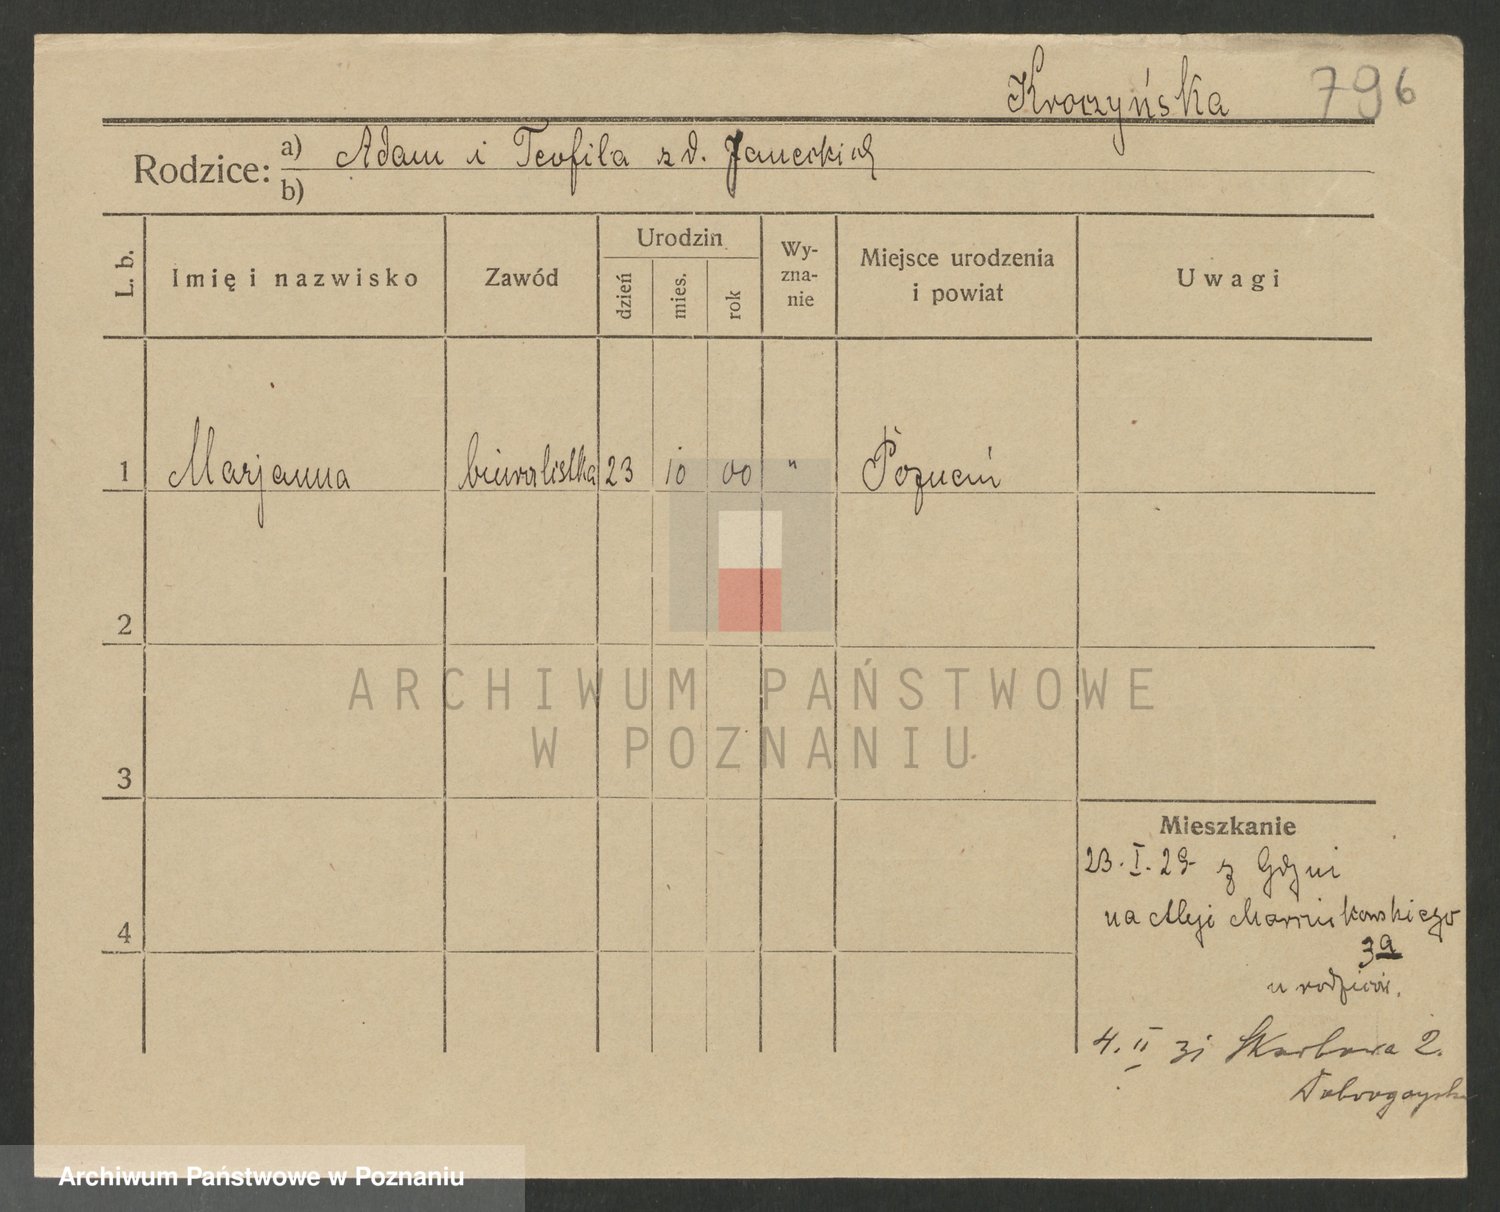 Kroczyńska 796
Rodzice: a) Adam i Teofila z d. Janeckich
b)
L. b. Imię i nazwisko Zawód Urodzin dzień mies. rok Wy-zna-nie Miejsce urodzenia i powiat Uwagi
1 Marjanna biuralistka 23 10 00 " Poznań
2
ARCHIWUM PAŃSTWOWE
W POZNANIU
3
Mieszkanie
23. I. 29 z Gdyni
na Aleji Marcinkowskiego
4
3a
u rodziców.
4. II Skarbowa 2.
Archiwum Państwowe w Poznaniu